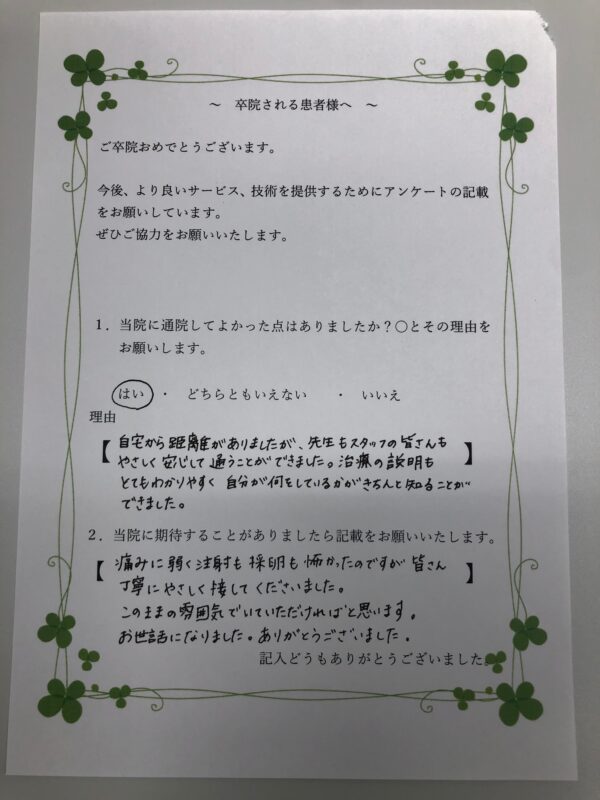 ～ 卒院される患者様へ ～
ご卒院おめでとうございます。
今後、より良いサービス、技術を提供するためにアンケートの記載
をお願いしています。
ぜひご協力をお願いいたします。
１．当院に通院してよかった点はありましたか？〇とその理由を
お願いします。
はい ・ どちらともいえない ・ いいえ
理由
【自宅から距離がありましたが、先生もスタッフの皆さんも
やさしく安心して通うことができました。治療の説明も
とてもわかりやすく自分が何をしているかがきちんと知ることが
できました。】
２．当院に期待することがありましたら記載をお願いいたします。
【痛みに弱く注射も採卵も怖かったのですが皆さん
丁寧にやさしく接してくださいました。
このままの雰囲気でいていただければと思います。
お世話になりました。ありがとうございました。】
記入どうもありがとうございました。